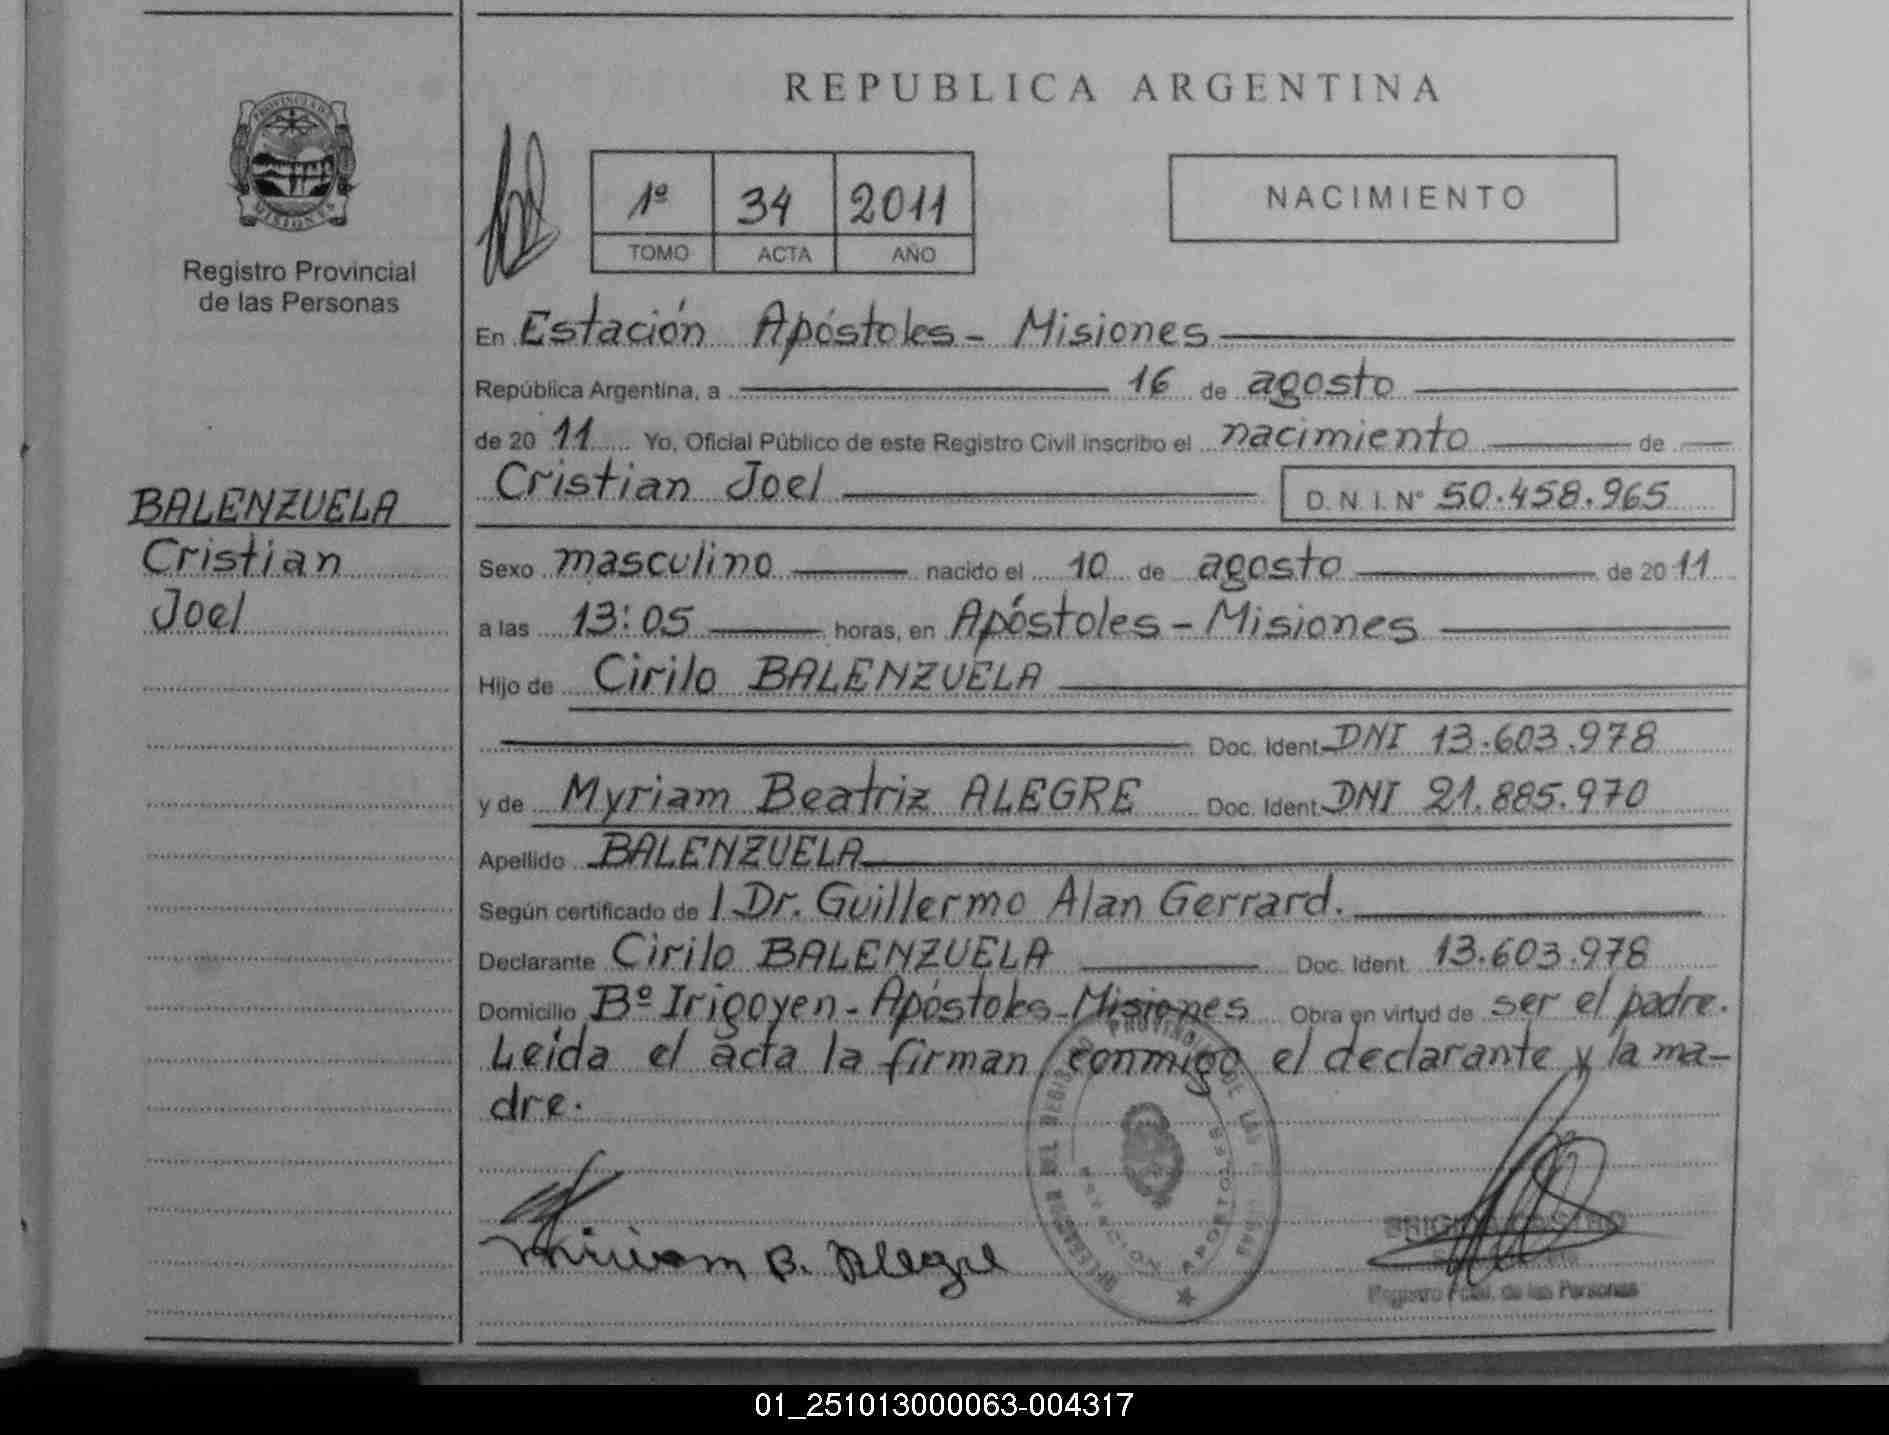 REPUBLICA ARGENTINA
PROVINCIA DE
MISIONES
Registro Provincial
de las Personas
1º 34 2011
TOMO ACTA AÑO
NACIMIENTO
En Estación Apóstoles - Misiones
República Argentina, a 16 de agosto
de 2011 Yo, Oficial Público de este Registro Civil inscribo el nacimiento de
Cristian Joel D. N. I. Nº 50.458.965
BALENZUELA
Cristian
Joel
Sexo masculino nacido el 10 de agosto de 2011
a las 13:05 horas, en Apóstoles - Misiones
Hijo de Cirilo BALENZUELA
Doc. Ident. DNI 13.603.978
y de Myriam Beatriz ALEGRE Doc. Ident. DNI 21.885.970
Apellido BALENZUELA
Según certificado de / Dr. Guillermo Alan Gerrard.
Declarante Cirilo BALENZUELA Doc. Ident. 13.603.978
Domicilio Bº Irigoyen - Apóstoles - Misiones Obra en virtud de ser el padre.
Leída el acta la firman conmigo el declarante y la ma-
dre.
Miriam B. Alegre
Registro Pcial. de las Personas
01_251013000063-004317